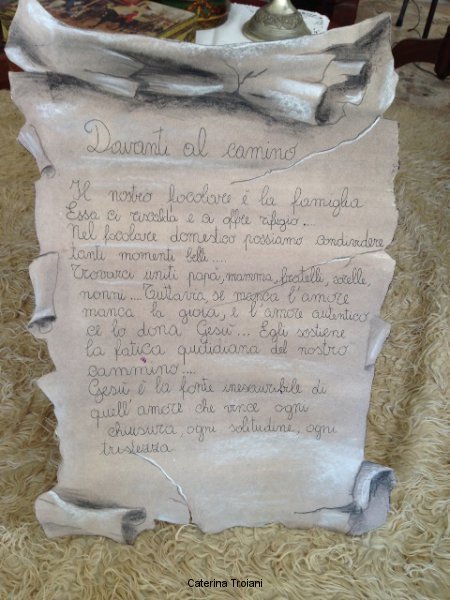 Davanti al camino
Il nostro focolare è la famiglia
Essa ci riscalda e ci offre rifugio....
Nel focolare domestico possiamo condividere
tanti momenti belli....
Trovarci uniti papà, mamma, fratelli, sorelle,
nonni.... Tuttavia, se manca l'amore
manca la gioia, e l'amore autentico
ce lo dona Gesù... Egli sostiene
la fatica quotidiana del nostro
cammino....
Gesù è la fonte inesauribile di
quell'amore che vince ogni
chiusura, ogni solitudine, ogni
tristezza
Caterina Troiani